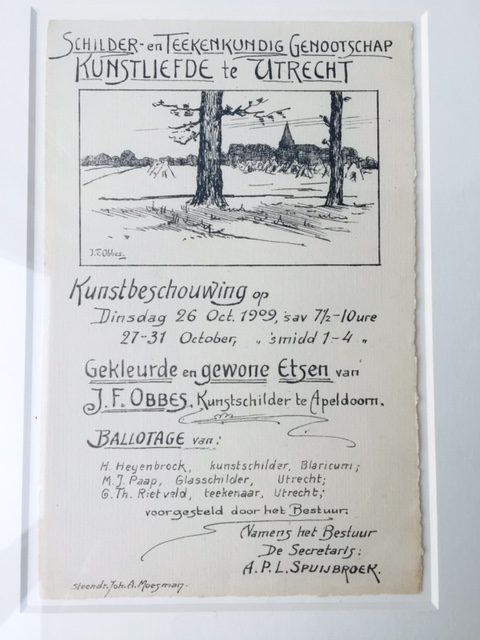 SCHILDER- en TEEKENKUNDIG GENOOTSCHAP
KUNSTLIEFDE te UTRECHT
J.F. Obbes.
Kunstbeschouwing op
Dinsdag 26 Oct. 1909, 'sav 7½-10 ure
27-31 October, „ 'smidd 1-4 „
Gekleurde en gewone Etsen van
J.F. OBBES, Kunstschilder te Apeldoorn.
BALLOTAGE van:
H. Heyenbrock, kunstschilder, Blaricum;
M.J. Paap, Glasschilder, Utrecht;
G. Th. Rietveld, teekenaar, Utrecht;
voorgesteld door het Bestuur.
Namens het Bestuur
De Secretaris:
A.P.L. SPUIJBROEK.
Steendr. Joh. A. Moesman.